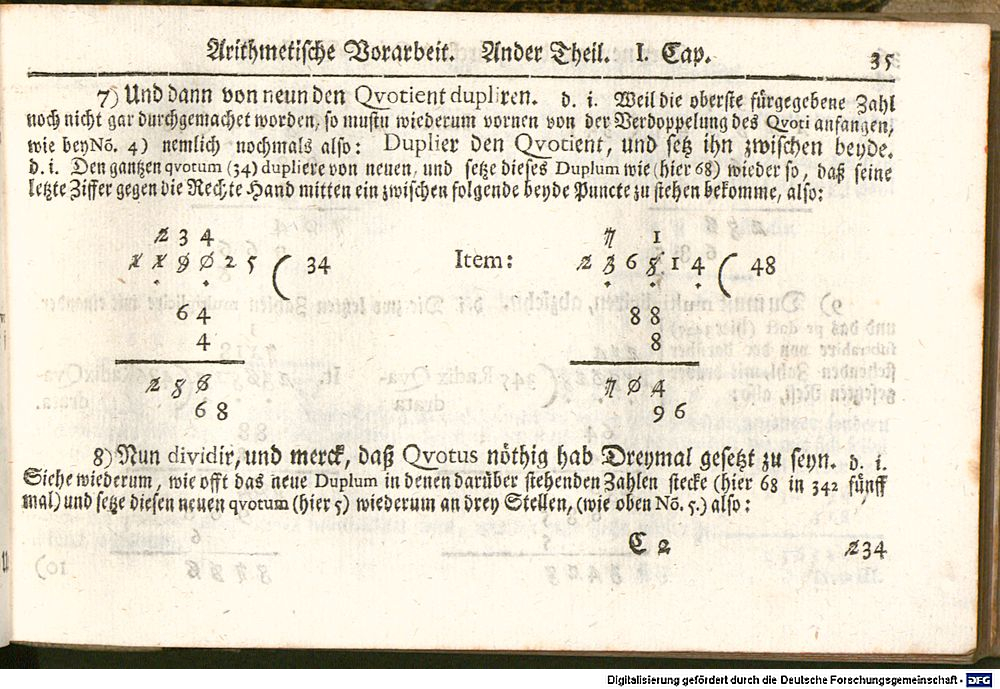 Arithmetische Vorarbeit. Ander Theil. I. Cap. 35
7) Und dann von neun den Qvotient dupliren. d. i. Weil die oberste fürgegebene Zahl
noch nicht gar durchgemachet worden, so mustu wiederum vornen von der Verdoppelung des Qvoti anfangen,
wie bey No. 4) nemlich nochmals also: Duplier den Qvotient, und setz ihn zwischen beyde.
d. i. Den gantzen qvotum (34) dupliere von neuen, und setze dieses Duplum wie (hier 68) wieder so, daß seine
letzte Ziffer gegen die Rechte Hand mitten ein zwischen folgende beyde Puncte zu stehen bekomme, also:
2 3 4
1 1 9 0 2 5 ( 34
6 4
4
2 5 6
6 8
Item:
7 1
2 3 6 5 1 4 ( 48
8 8
8
7 0 4
9 6
8) Nun dividir, und merck, daß Qvotus nöthig hab Dreymal gesetzt zu seyn. d. i.
Siehe wiederum, wie offt das neue Duplum in denen darüber stehenden Zahlen stecke (hier 68 in 342 fünff
mal) und setze diesen neuen qvotum (hier 5) wiederum an drey Stellen, (wie oben No. 5.) also:
C 2 234
Digitalisierung gefördert durch die Deutsche Forschungsgemeinschaft - DFG